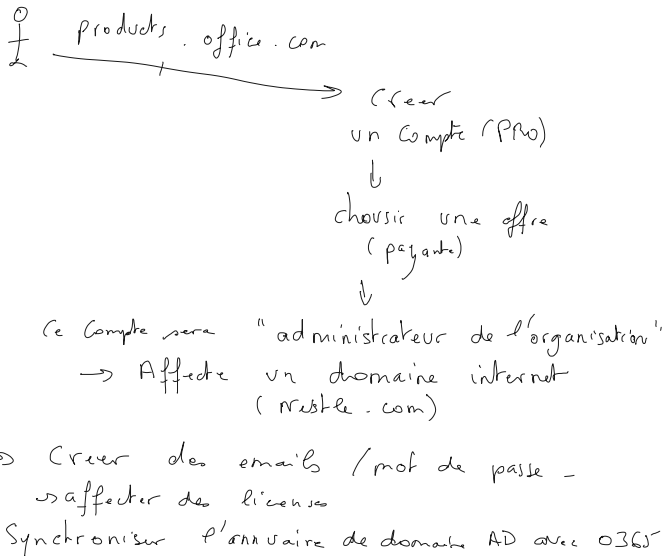 products.office.com
Creer
un Compte (PRO)
↓
chousir une offre
(payante)
↓
Ce Compte sera "administrateur de l'organisation"
→ Affecte un domaine internet
(Nestle.com)
Creer des emails / mot de passe -
→ affecter des licenses
Synchroniser l'annuaire de domaine AD avec O365